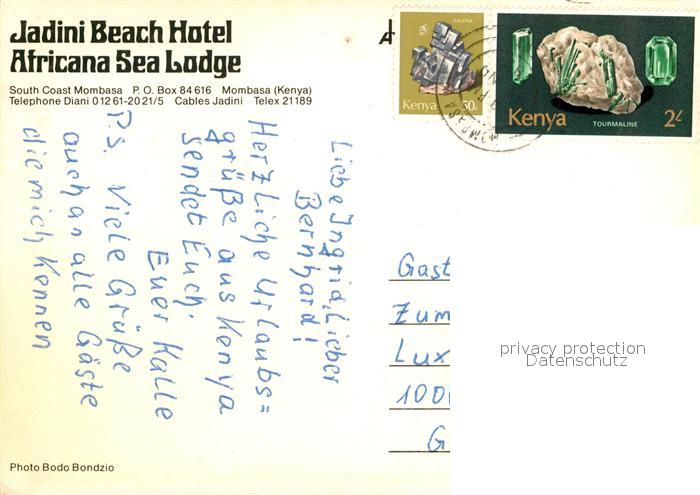 Jadini Beach Hotel
Africana Sea Lodge
South Coast Mombasa P. O. Box 84616 Mombasa (Kenya)
Telephone Diani 01261-2021/5 Cables Jadini Telex 21189
GALENA
Kenya 50c
Kenya TOURMALINE 2/-
MOMBASA
Liebe Ingrid, Lieber
Bernhard!
Herzliche Urlaubs=
grüße aus Kenya
sendet Euch
Euer Kalle
P.s. Viele Grüße
auch an alle Gäste
die mich kennen
Gast
Zum
Lux
100
G
privacy protection
Datenschutz
Photo Bodo Bondzio